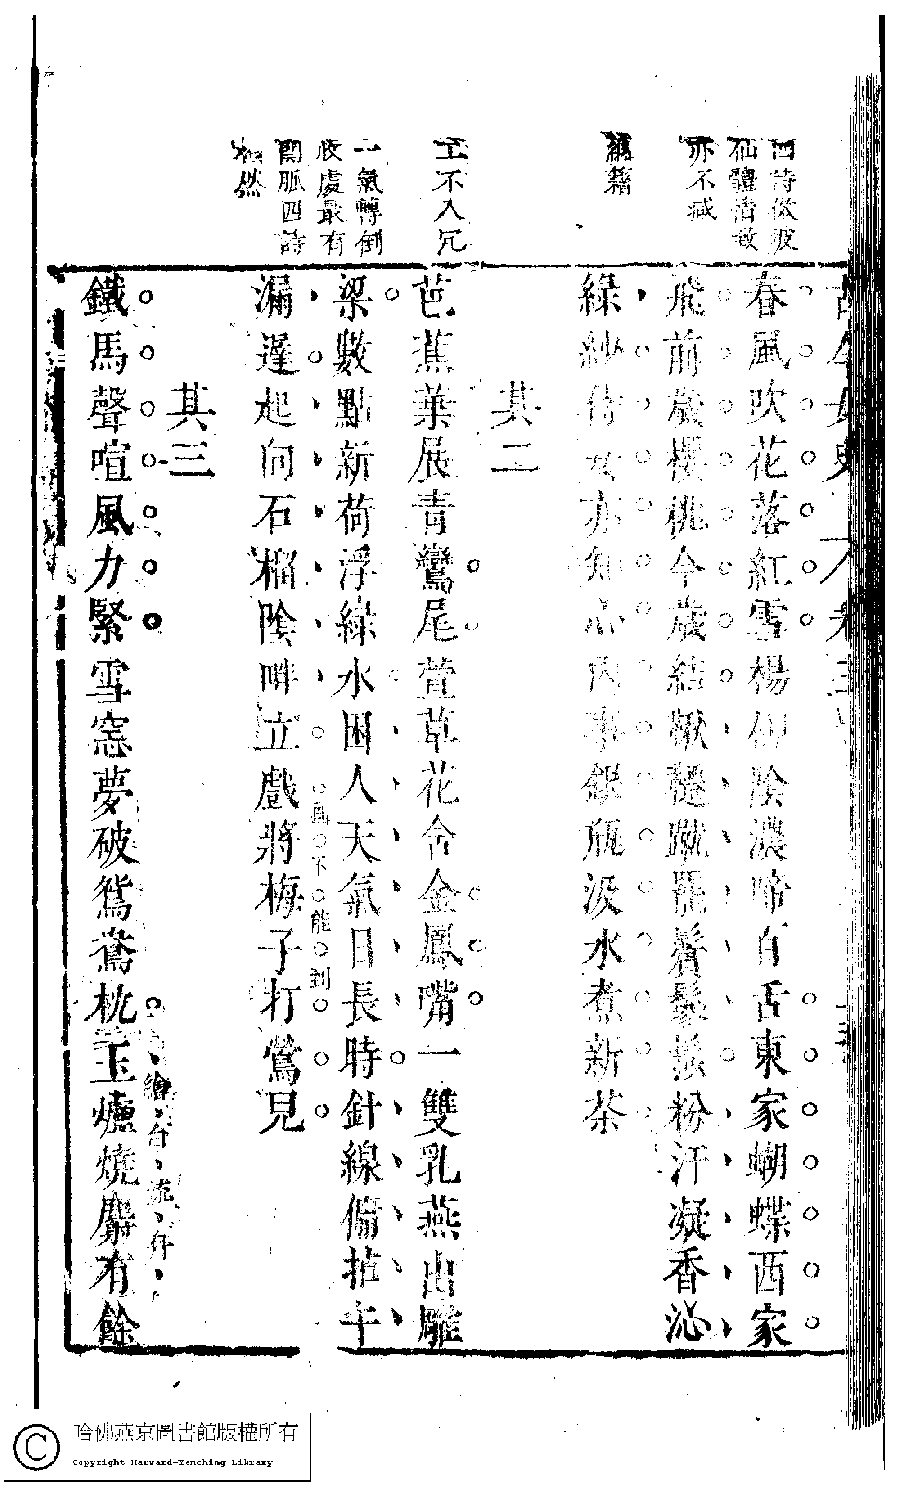 春風吹花落紅雪楊柳陰濃啼百舌東家蝴蝶西家
飛前歲櫻桃今歲結鞦韆蹴罷鬢鬖髿粉汗凝香沁
綠紗侍女亦知心內事銀瓶汲水煮新茶
其二
芭蕉葉展青鸞尾萱草花含金鳳嘴一雙乳燕出雕
梁數點新荷浮綠水困人天氣日長時針線慵拈午
漏遲起向石榴陰畔立戲將梅子打鶯兒
其三
鐵馬聲喧風力緊雪窓夢破鴛鴦枕玉爐燒麝有餘
四詩做
仙體清
亦不減
藉
工不入冗
一氣轉倒
收處最有
關脈四詩
然
畫不能到
繪
哈佛燕京圖書館版權所有
Copyright Harvard-Yenching Library